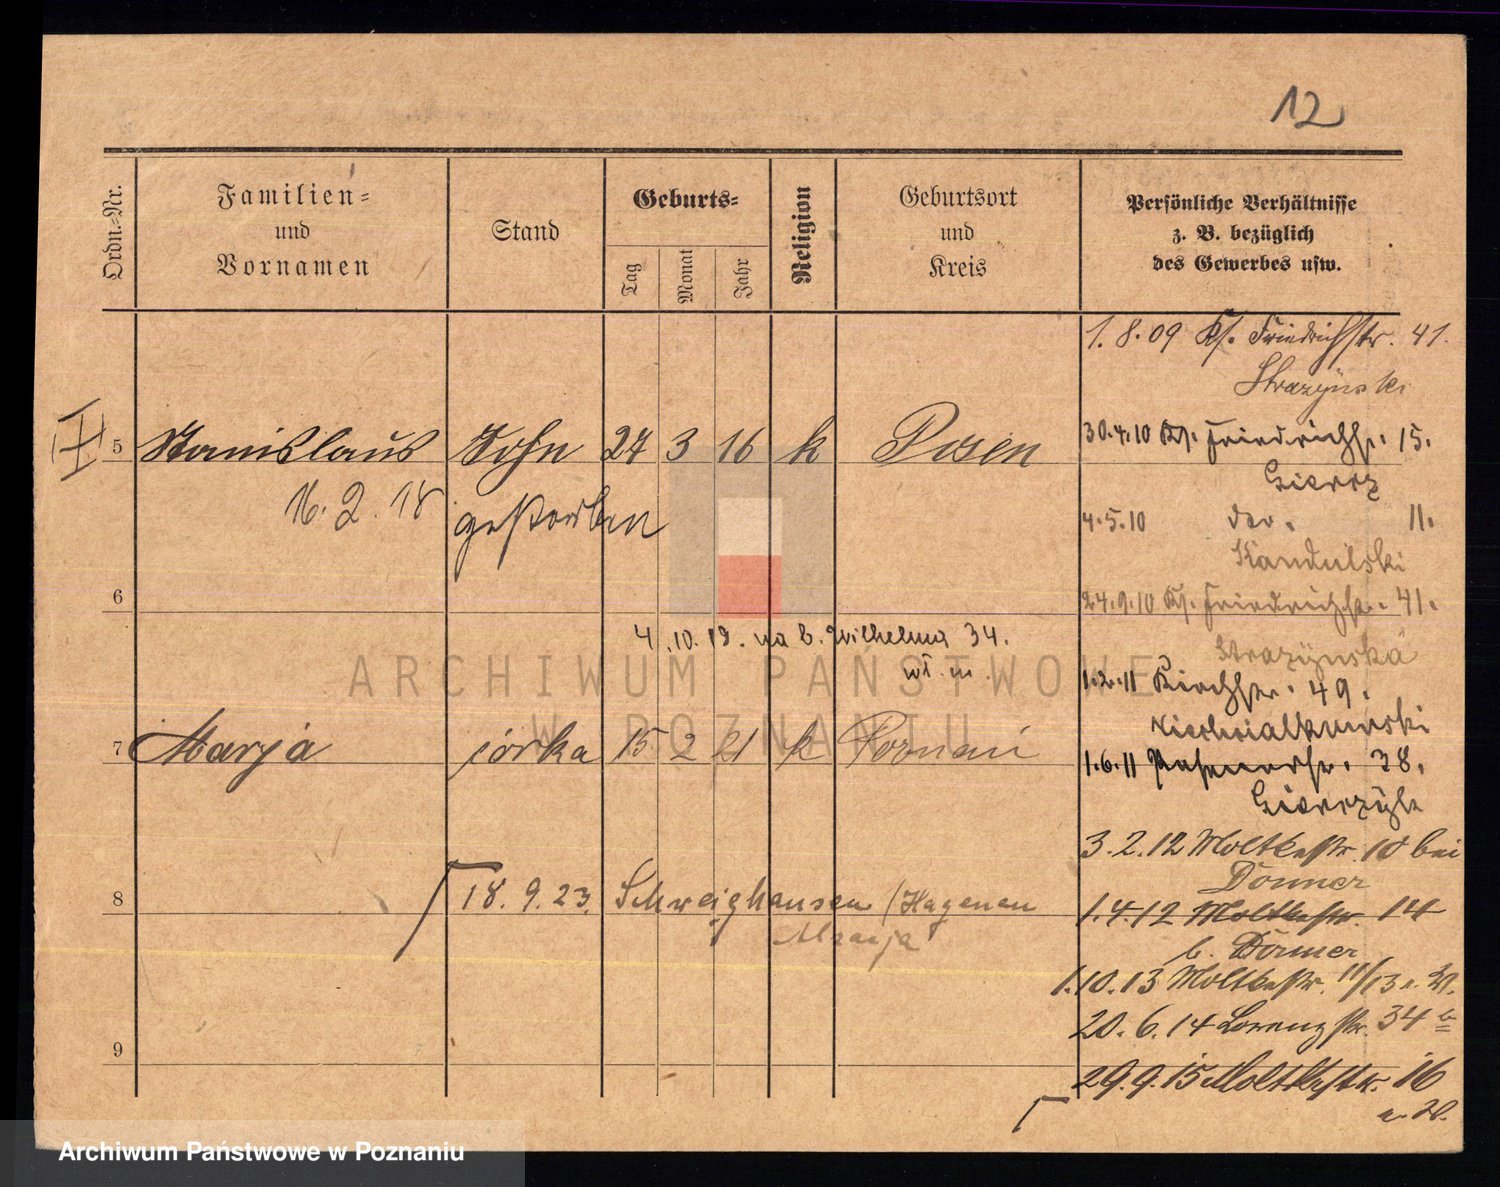 12
Ordn.-Nr.
Familien-
und
Vornamen
Stand
Geburts-
Tag
Monat
Jahr
Religion
Geburtsort
und
Kreis
Persönliche Verhältnisse
z. B. bezüglich
des Gewerbes usw.
5 Stanislaus Sohn 24 3 16 k Posen
16. 2. 18 gestorben
6
4.10.19. na b. Wilhelma 34.
wł. m.
7 Marja córka 15 2 21 k Poznań
8 18. 9. 23. Schweighausen /Hagenau
Marja
9
1. 8. 09 Friedrichstr. 41.
Strazynski
30.4.10 Friedrichstr. 15.
4.5.10 11.
Kandulski
24.9.10 Friedrichstr. 41.
Strazynska
1.2.11 Kirchstr. 49.
1.6.11 Posenerstr. 38.
3.2.12 Moltkestr. 10 bei
Dönner
1.4.12 Moltkestr. 14
b. Dönner
1.10.13 Moltkestr. 11/13
20.6.14 Lorenzstr. 34
29.9.15 Moltkestr. 16
ARCHIWUM PAŃSTWOWE
W POZNANIU
Archiwum Państwowe w Poznaniu